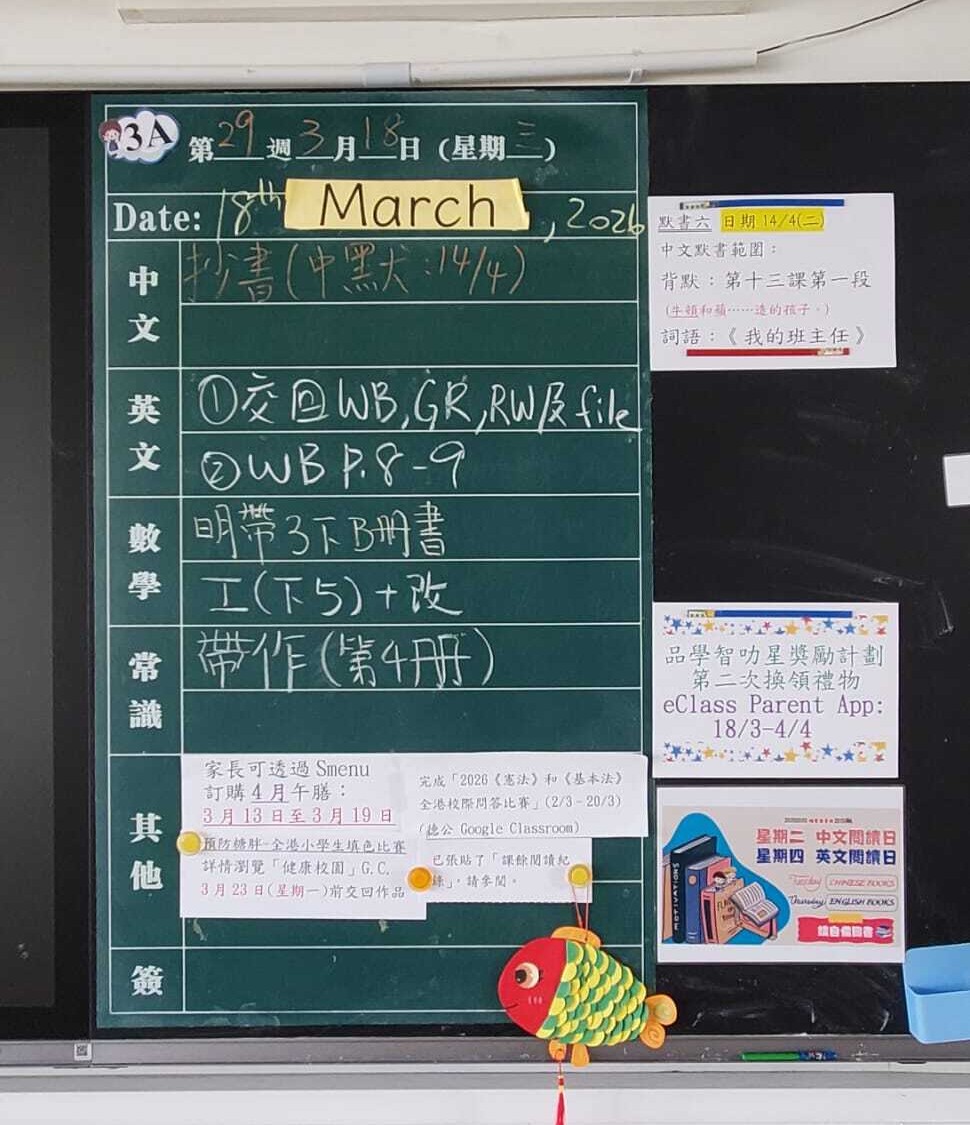 3A
第29週3月18日(星期三)
Date: 18th March, 2026
中文
抄書(中默:14/4)
英文
①交回WB,GR,RW及file
②WB P.8-9
數學
明帶3下B冊書
工(下5)+改
常識
帶作(第4冊)
其他
家長可透過 Smenu
訂購4月午膳:
3月13日至3月19日
預防糖胖-全港小學生填色比賽
詳情瀏覽「健康校園」G.C.
3月23日(星期一)前交回作品
完成「2026《憲法》和《基本法》
全港校際問答比賽」(2/3-20/3)
(德公 Google Classroom)
已張貼了「課餘閱讀紀
錄」,請參閱。
簽
默書六 日期14/4(二)
中文默書範圍:
背默:第十三課第一段
(牛頓和蘋……造的孩子。)
詞語:《我的班主任》
品學智叻星獎勵計劃
第二次換領禮物
eClass Parent App:
18/3-4/4
星期二 中文閱讀日
星期四 英文閱讀日
Tuesday CHINESE BOOKS
Thursday ENGLISH BOOKS
請自備圖書
MOTIVATIONS